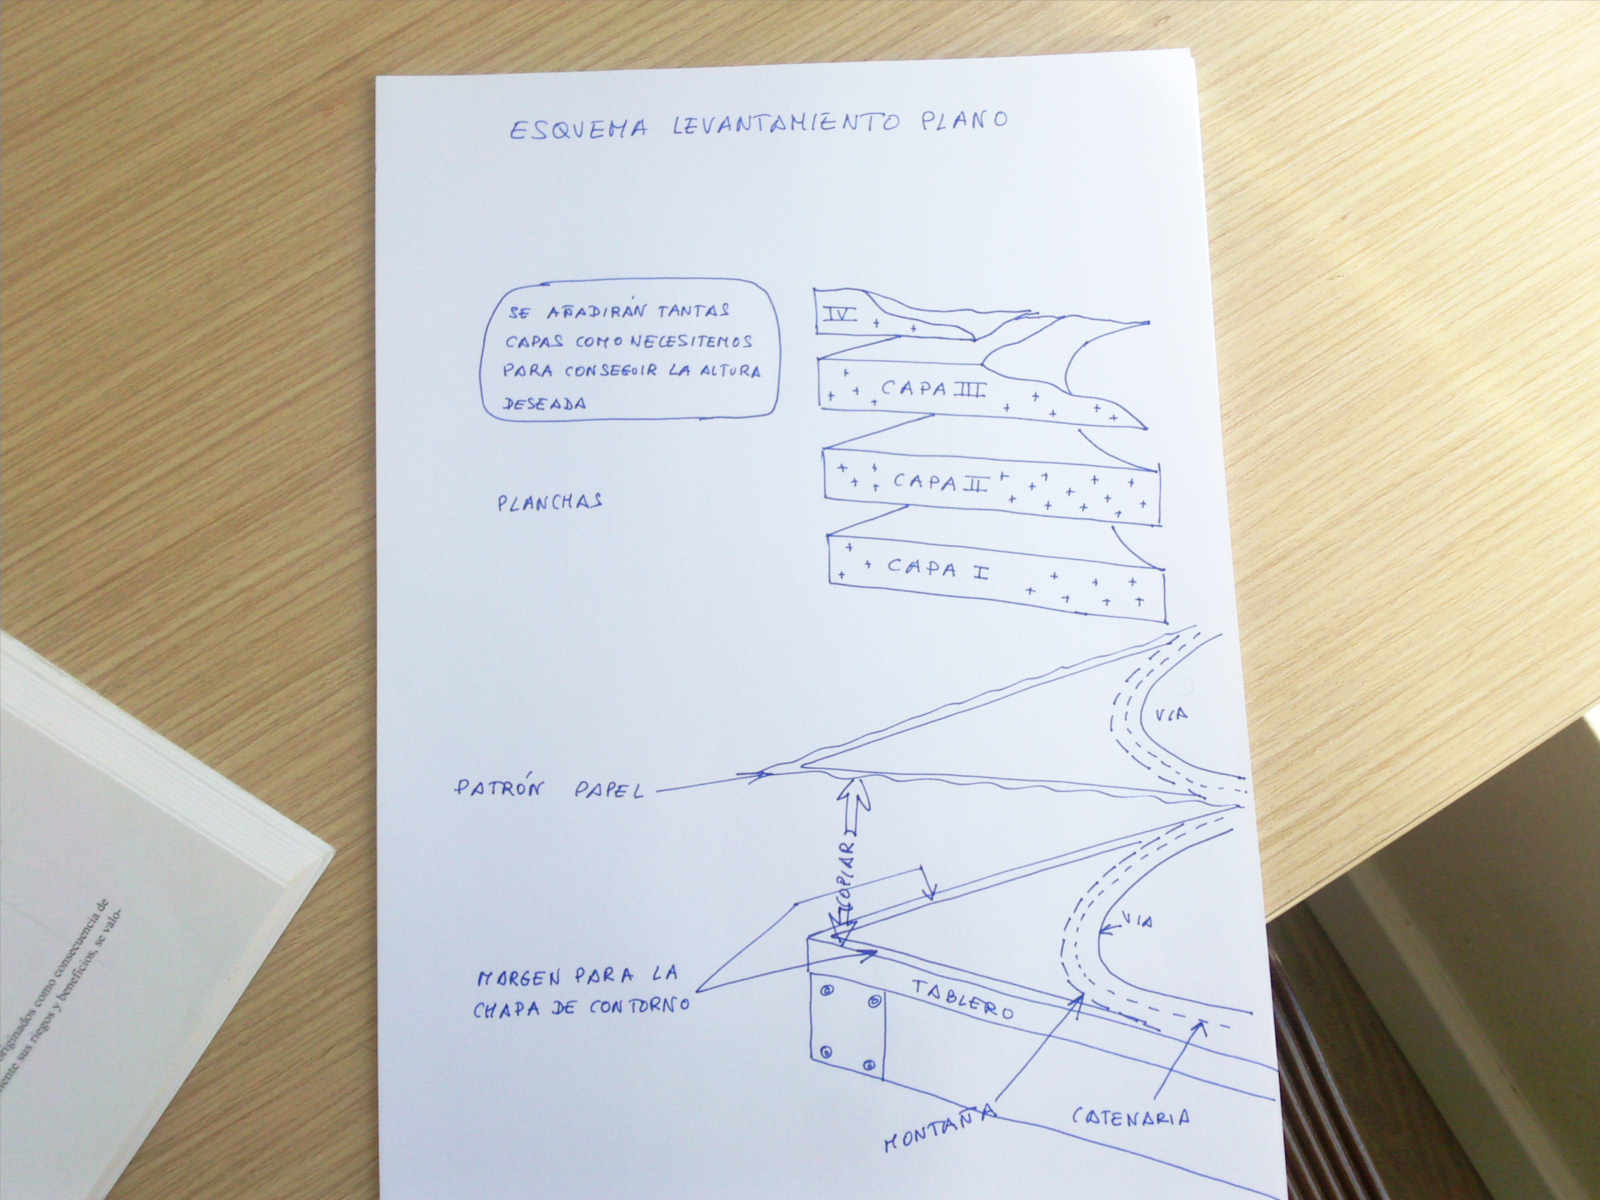 ESQUEMA LEVANTAMIENTO PLANO
SE AÑADIRÁN TANTAS
CAPAS COMO NECESITEMOS
PARA CONSEGUIR LA ALTURA
DESEADA
IV
CAPA III
CAPA II
CAPA I
PLANCHAS
VIA
PATRÓN PAPEL
COPIAR
VIA
MARGEN PARA LA
CHAPA DE CONTORNO
TABLERO
MONTAÑA
CATENARIA
originados como consecuencia de
mente sus riegos y beneficios, se valo-